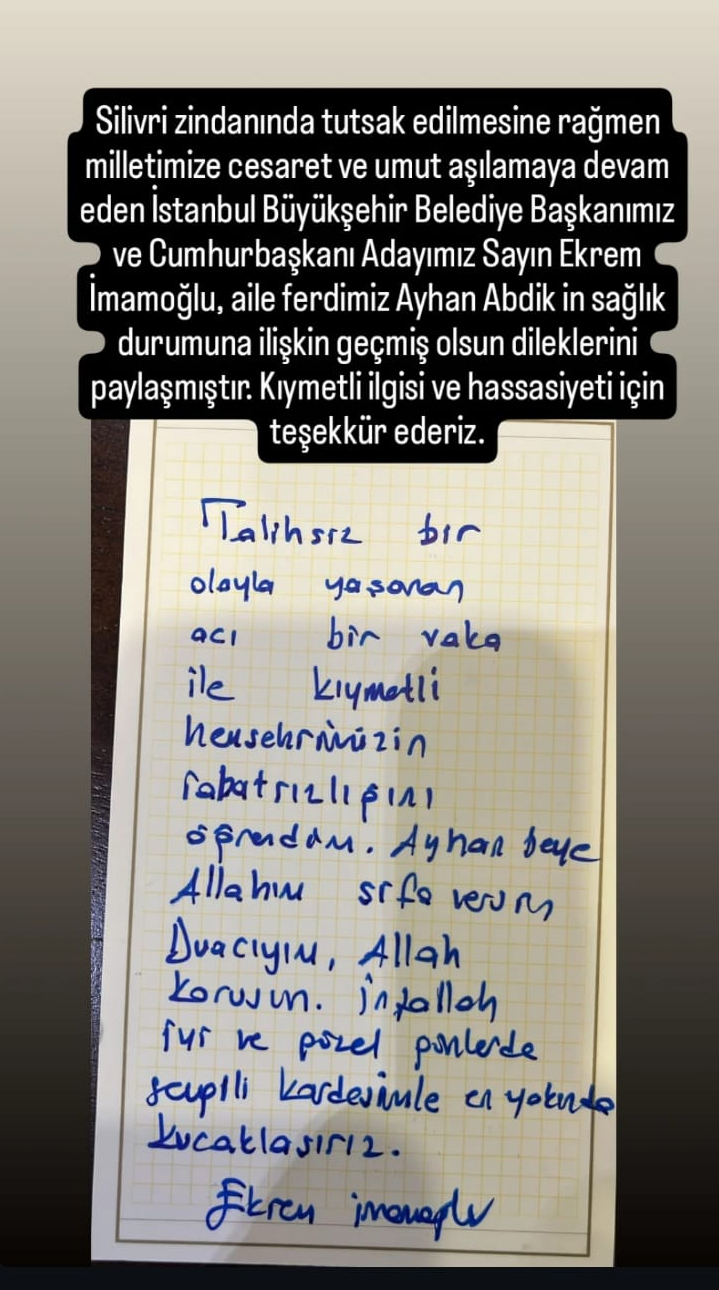 Silivri zindanında tutsak edilmesine rağmen
milletimize cesaret ve umut aşılamaya devam
eden İstanbul Büyükşehir Belediye Başkanımız
ve Cumhurbaşkanı Adayımız Sayın Ekrem
İmamoğlu, aile ferdimiz Ayhan Abdik in sağlık
durumuna ilişkin geçmiş olsun dileklerini
paylaşmıştır. Kıymetli ilgisi ve hassasiyeti için
teşekkür ederiz.
Talihsiz bir
olayla yaşanan
acı bir vaka
ile kıymetli
hemşehrimizin
rahatsızlığını
öğrendim. Ayhan beye
Allahım şifa versin
Duacıyım, Allah
korusun. İnşallah
iyi ve güzel günlerde
sevgili kardeşimle en yakında
kucaklaşırız.
Ekrem İmamoğlu